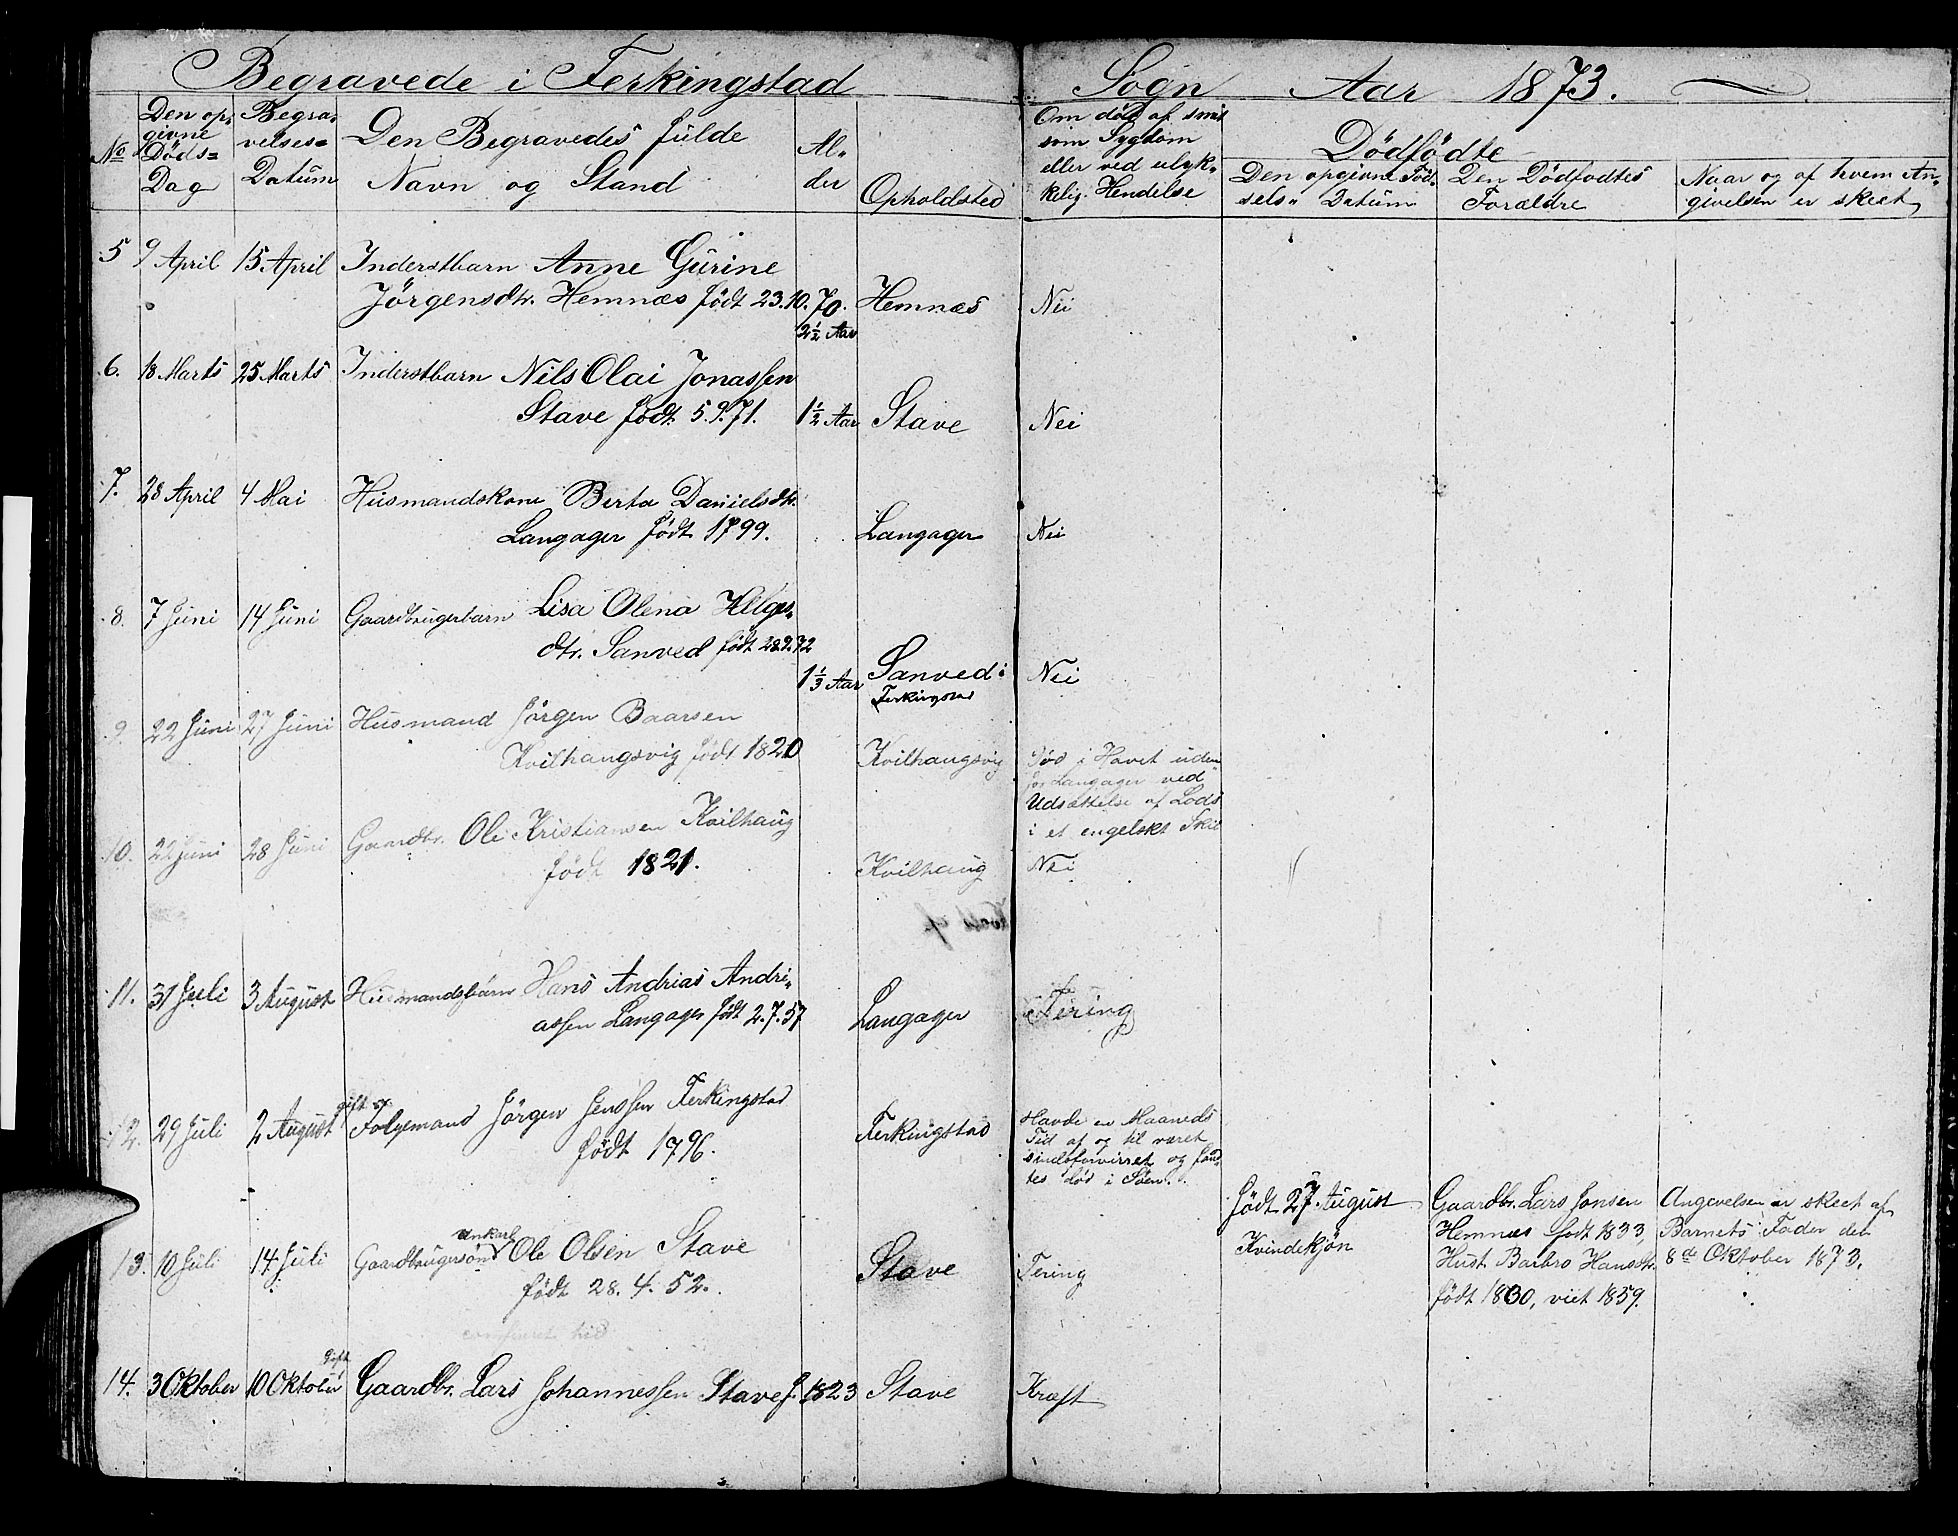 Begravede i Ferkingstad Sogn Aar 1873.
No
Den op-
givne
Døds=
Dag
Begra-
velses=
Datum
Den Begravedes fulde
Navn og Stand
Al-
der
Opholdsted
Om død af smit
som Sygdom
eller ved ulyk-
kelig Hendelse
Dødfødte
Den opgivne Fød-
sels- Datum
Den Dødfødtes
Forældre
Naar og af hvem An-
givelsen er skeet
5 9 April 15 April Inderstbarn Anne Gurine
Jörgensdtr. Hemnæs født 23.10.70. Hemnæs Nei
2½ Aar
6. 18 Marts 25 Marts Inderstbarn Nils Olai Jonassen
Stave født 5.9.71. 1½ Aar Stave Nei
7. 28 April 4 Mai Husmandskone Berta Danielsdtr.
Langager født 1799. Langager Nei
8. 7 Juni 14 Juni Gaardbrugerbarn Lisa Olena Helges-
dtr. Sanved født 28.2.72
1⅓ Aar Sanved i Nei
Ferkingstad
9. 22 Juni 27 Juni Husmand Jörgen Baarsen
Kvilhaugsvig født 1820 Kvilhaugsvig Död i Havet uden
for Langager ved
Udsættelse af Lods
i et engelskt Skib
10. 22 Juni 28 Juni Gaardbr. Ole Kristiansen Kvilhaug
født 1821. Kvilhaug Nei
11. 31 Juli 3 August Husmandsbarn Hans Andrias Andri-
assen Langager født 2.7.57 Langager Tering
12. 29 Juli 2 August gift Folgemand Jörgen Jenssen Ferkingstad
født 1796. Ferkingstad Havde en Maaneds
Tid af og til været
sindsforvirret og fand-
tes død i Søen.
Født 27 August
Kvindekjön
Gaardbr. Lars Jonsen
Hemnæs født 1833,
Hust. Barbro Hansdtr.
født 1830, viet 1859.
Angevelsen er skeet af
Barnets Fader den
8de Oktober 1873.
13. 10 Juli 14 Juli Gaardbrugersøn Unkarl Ole Olsen Stave
født 28.4.52. Stave Tering
14. 3 Oktober 10 Oktober Gift Gaardbr. Lars Johannessen Stave f. 1823 Stave Kræft